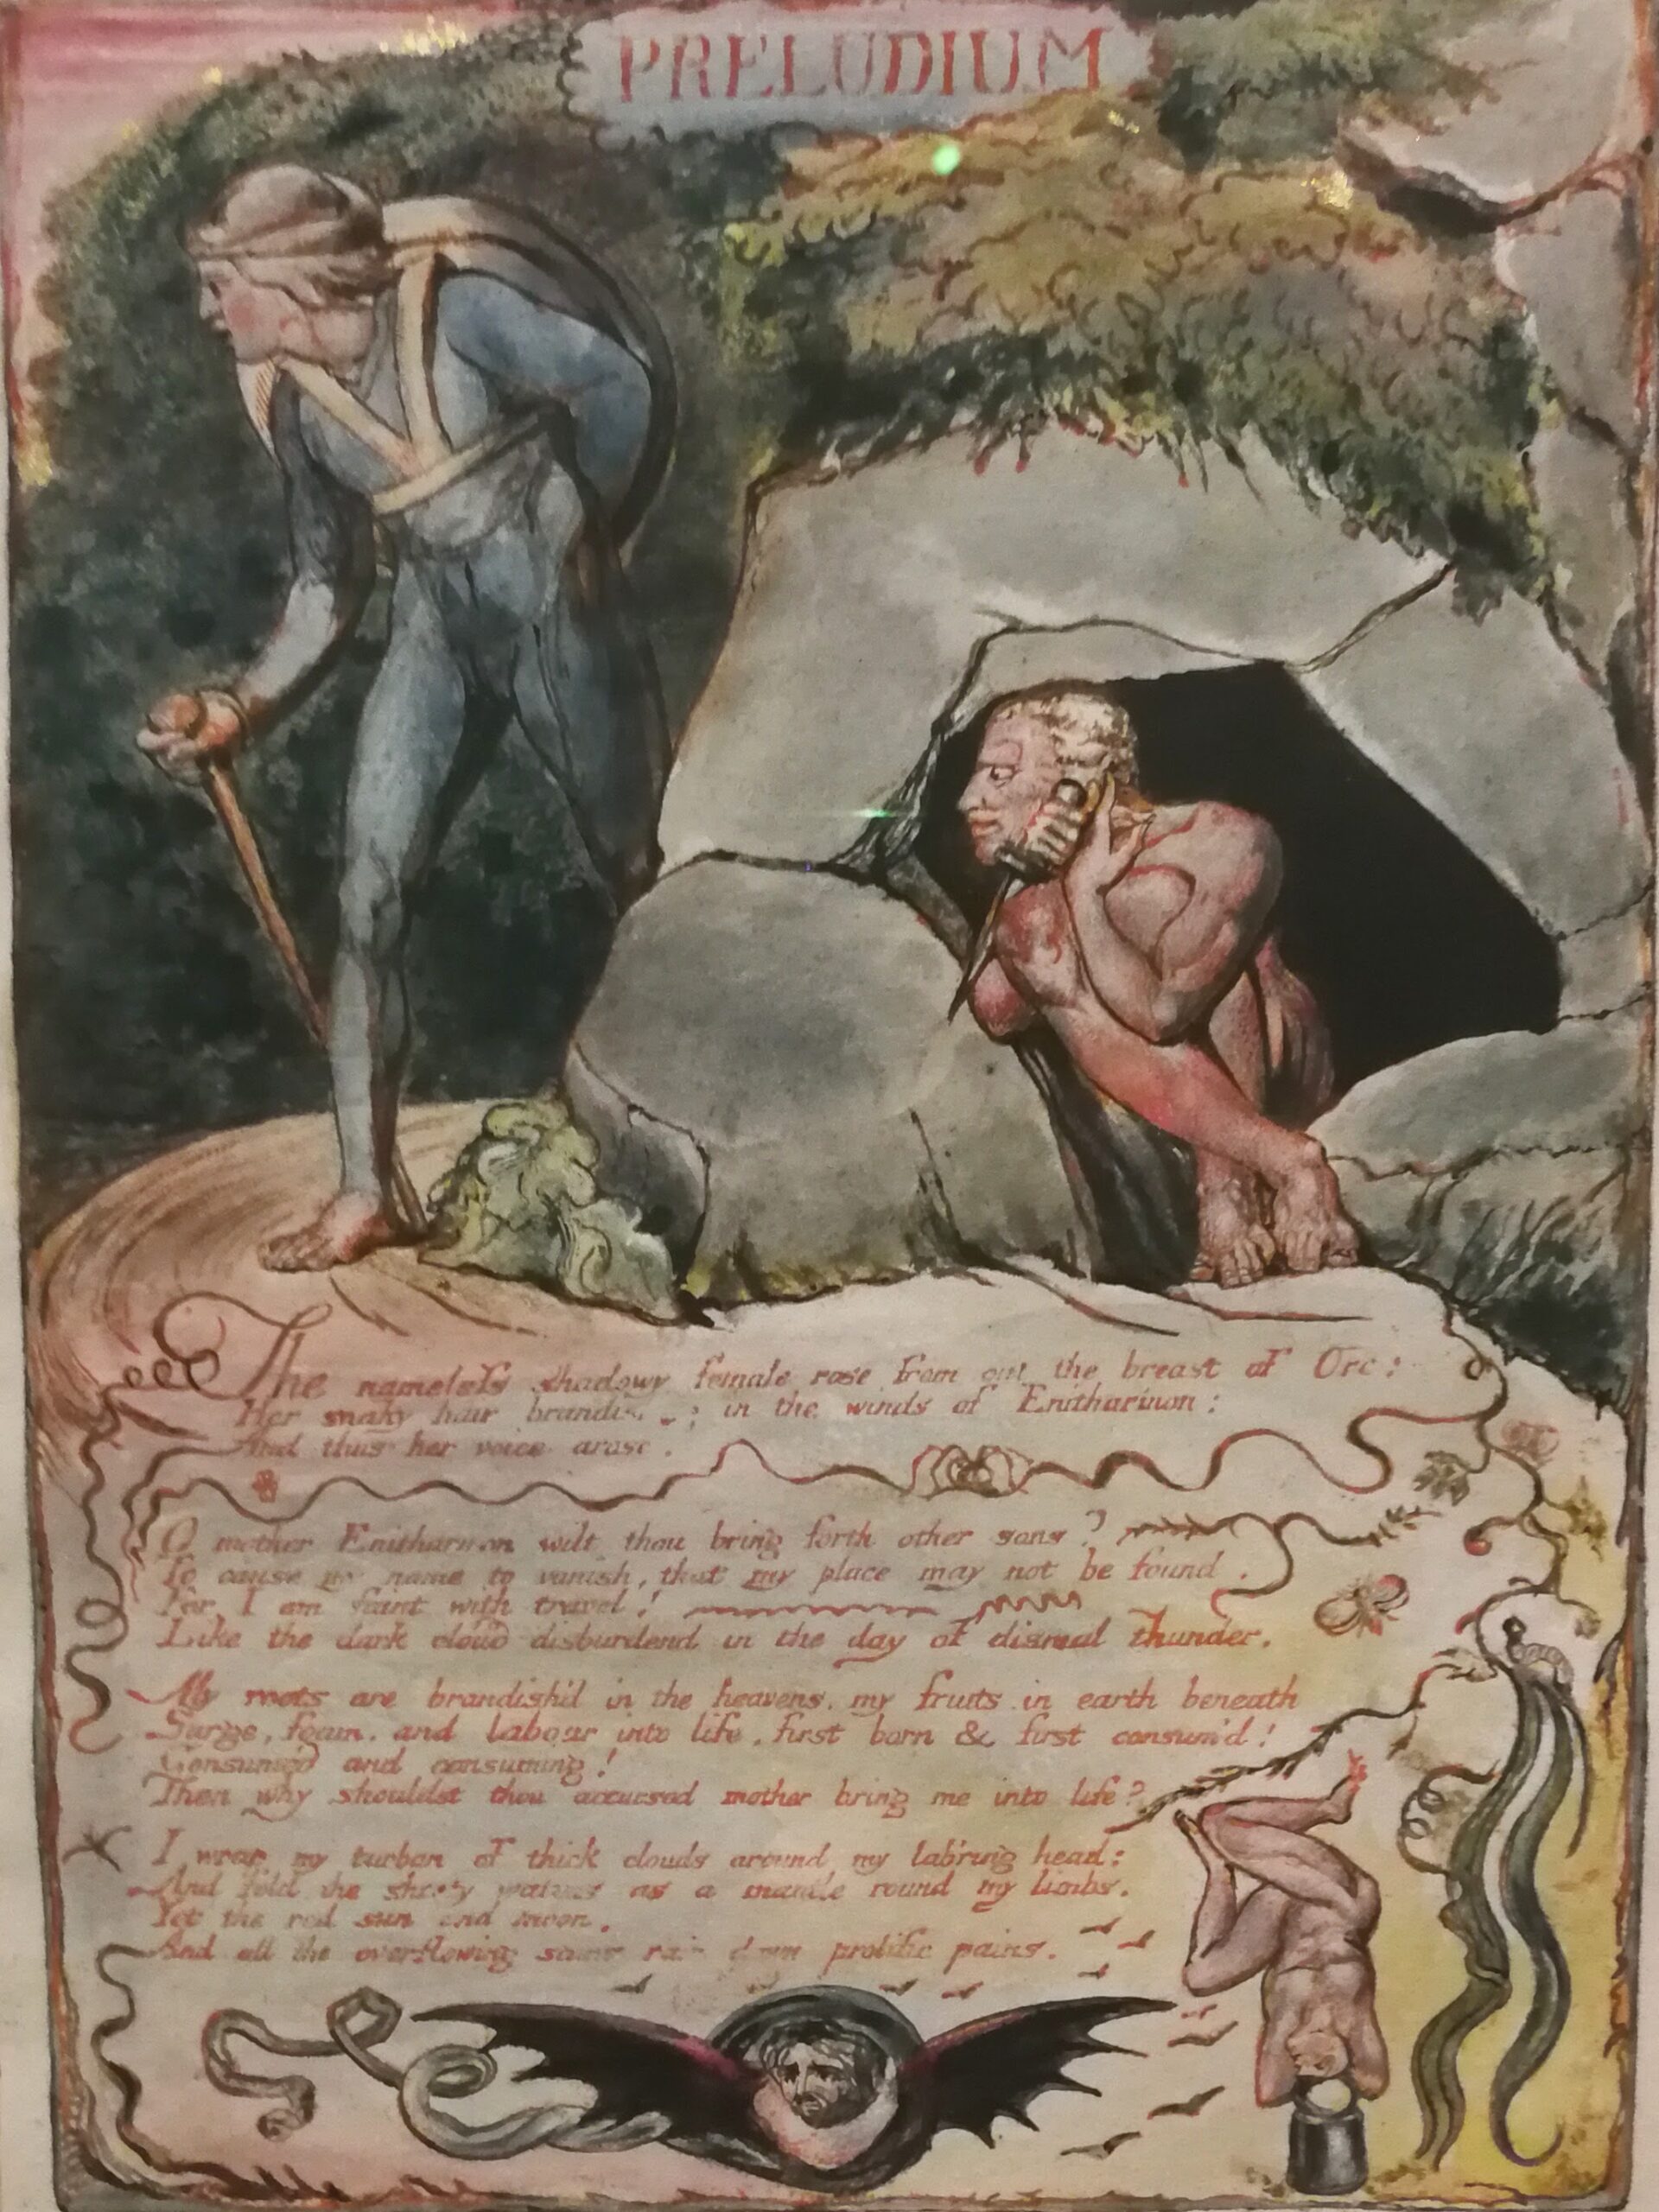 PRELUDIUM
The nameless shadowy female rose from out the breast of Orc:
Her snaky hair in the winds of Enitharmon:
And thus her voice arose.
O mother Enitharmon wilt thou bring forth other sons?
To cause my name to vanish, that my place may not be found.
For I am faint with travel!
Like the dark cloud disburdend in the day of dismal thunder.
My roots are brandish'd in the heavens. my fruits in earth beneath
Surge, foam, and labour into life, first born & first consum'd!
Consumed and consuming!
Then why shouldst thou accursed mother bring me into life?
I wrap my turban of thick clouds around my lab'ring head:
And fold the sheety waters as a mantle round my limbs.
Yet the red sun and moon.
And all the overflowing stars rain down prolific pains.